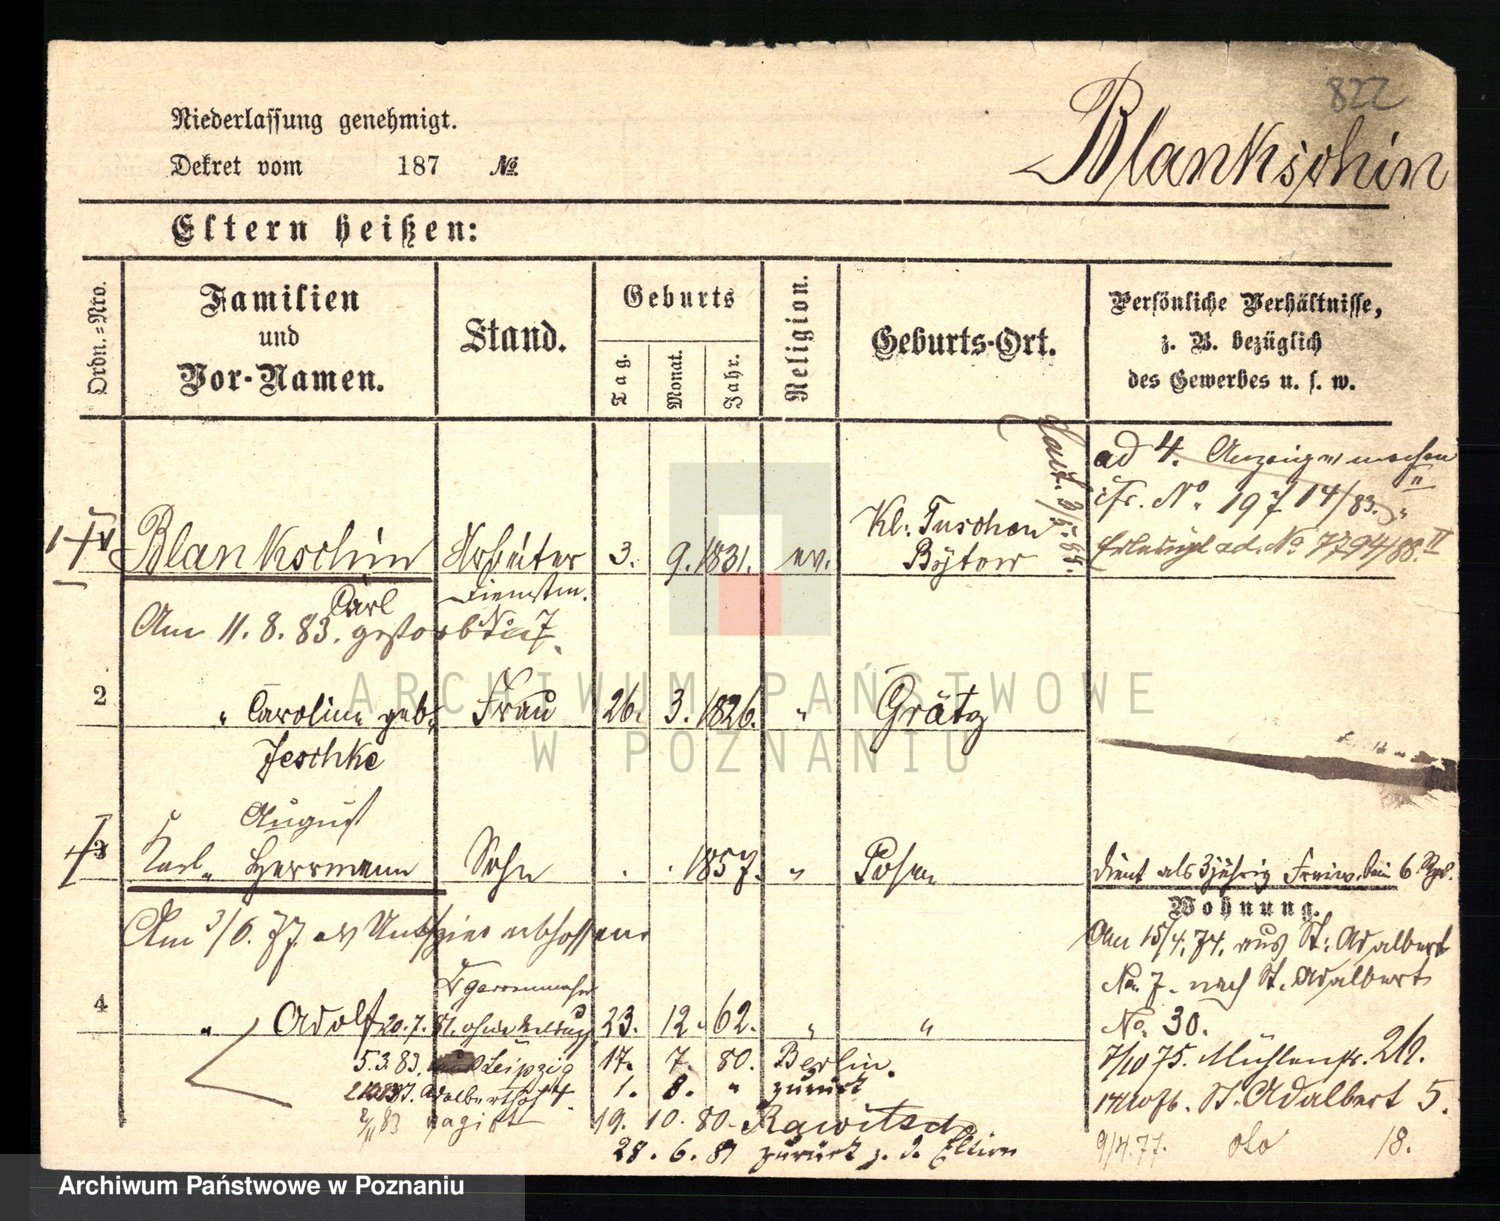 822
Niederlassung genehmigt.
Dekret vom 187 №
Blankschin
Eltern heißen:
Ordn.=Nro.
Familien
und
Vor-Namen.
Stand.
Geburts
Tag.
Monat.
Jahr.
Religion.
Geburts-Ort.
Persönliche Verhältnisse,
z. B. bezüglich
des Gewerbes u. s. w.
ad 4. Anzeige machen
cfr. No. 197 14/83.
Erledigt ad. No 7794/88. II
1 Blankschin Arbeiter 3. 9. 1831. ev. Kl: Tuschen
Bytow
Carl Dienstm.
Am 11. 8. 83. gestorben
No 7.
2 " Caroline geb. Frau 26. 3. 1826. " Grätz
Jeschke
August
3 Karl " Herrmann Sohn . . 1857. " Posen
dient als 3jährig Freiw. beim 6 Rgt.
Wohnung.
Am 3/6. 77.
Am 15/4. 74. aus St: Adalbert
No. 7. nach St. Adalbert
No. 30.
4 " Adolf 20. 7. 81. ohne 23. 12. 62. " "
5. 3. 83. Leipzig 17. 7. 80. Berlin.
7/10 75. Mühlenstr. 26.
Adalbertstr 4. 1. 8. " zurück
St. Adalbert 5.
2/11 83 19. 10. 80. Rawitsch
9/4. 77. dto 18.
28. 6. 81 zurück z. d. Eltern
ARCHIWUM PAŃSTWOWE
W POZNANIU
Archiwum Państwowe w Poznaniu